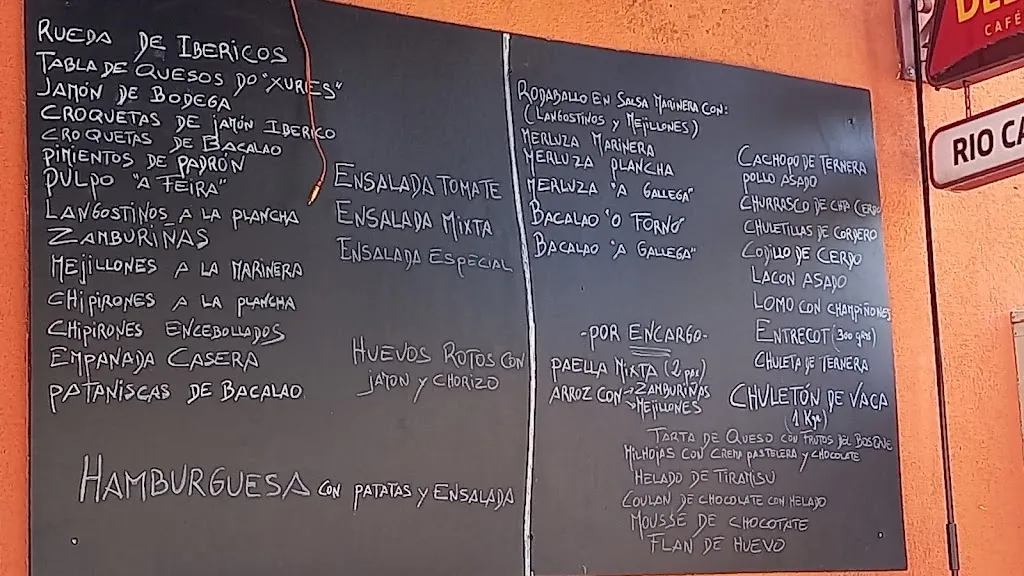 RUEDA DE IBERICOS
TABLA DE QUESOS DO "XURES"
JAMÓN DE BODEGA
CROQUETAS DE JAMÓN IBERICO
CROQUETAS DE BACALAO
PIMIENTOS DE PADRÓN
PULPO "A FEIRA"
LANGOSTINOS A LA PLANCHA
ZAMBURIÑAS
MEJILLONES A LA MARINERA
CHIPIRONES A LA PLANCHA
CHIPIRONES ENCEBOLLADOS
EMPANADA CASERA
PATANISCAS DE BACALAO
ENSALADA TOMATE
ENSALADA MIXTA
ENSALADA ESPECIAL
HUEVOS ROTOS CON
JAMON Y CHORIZO
HAMBURGUESA CON PATATAS Y ENSALADA
RODABALLO EN SALSA MARINERA CON:
(LANGOSTINOS Y MEJILLONES)
MERLUZA MARINERA
MERLUZA PLANCHA
MERLUZA "A GALLEGA"
BACALAO "O FORNO"
BACALAO "A GALLEGA"
-POR ENCARGO-
PAELLA MIXTA (2 per)
ARROZ CON → ZAMBURIÑAS
→ MEJILLONES
CACHOPO DE TERNERA
POLLO ASADO
CHURRASCO DE CERDO
CHULETILLAS DE CORDERO
CODILLO DE CERDO
LACON ASADO
LOMO CON CHAMPIÑONES
ENTRECOT (300 grs)
CHULETA DE TERNERA
CHULETÓN DE VACA
(1 Kgr)
TARTA DE QUESO CON FRUTOS DEL BOSQUE
MILHOJAS CON CREMA PASTELERA Y CHOCOLATE
HELADO DE TIRAMISU
COULAN DE CHOCOLATE CON HELADO
MOUSSE DE CHOCOTATE
FLAN DE HUEVO
CAFÉ
RIO CA